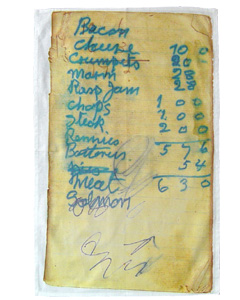 Bacon
Cheese 10 0
Crumpets 20
Marm 28
Rasp Jam 28
Chops 1 0 0
Steak 1 0 0
Rennies 2 0 0
Batterys 5 7 6
5 4
Meat 6 3 0
Salmon